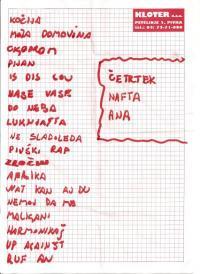 KLOTER d.o.o.
PETELINJE 1, PIVKA
KOČIJA
MOJA DOMOVINA
OKOROM
PIJAN
IS DIS LOV
NAŠE VASE
DO NEBA
LUKNJASTA
NE SLADOLEDA
PIVŠKI RAP
AFRIKA
WAT KAN AJ DU
NEMOJ DA ME
MALIGANI
HARMONIKAŠ
UP AGAINST
RUF AN
ČETRTEK
NAFTA
ANA